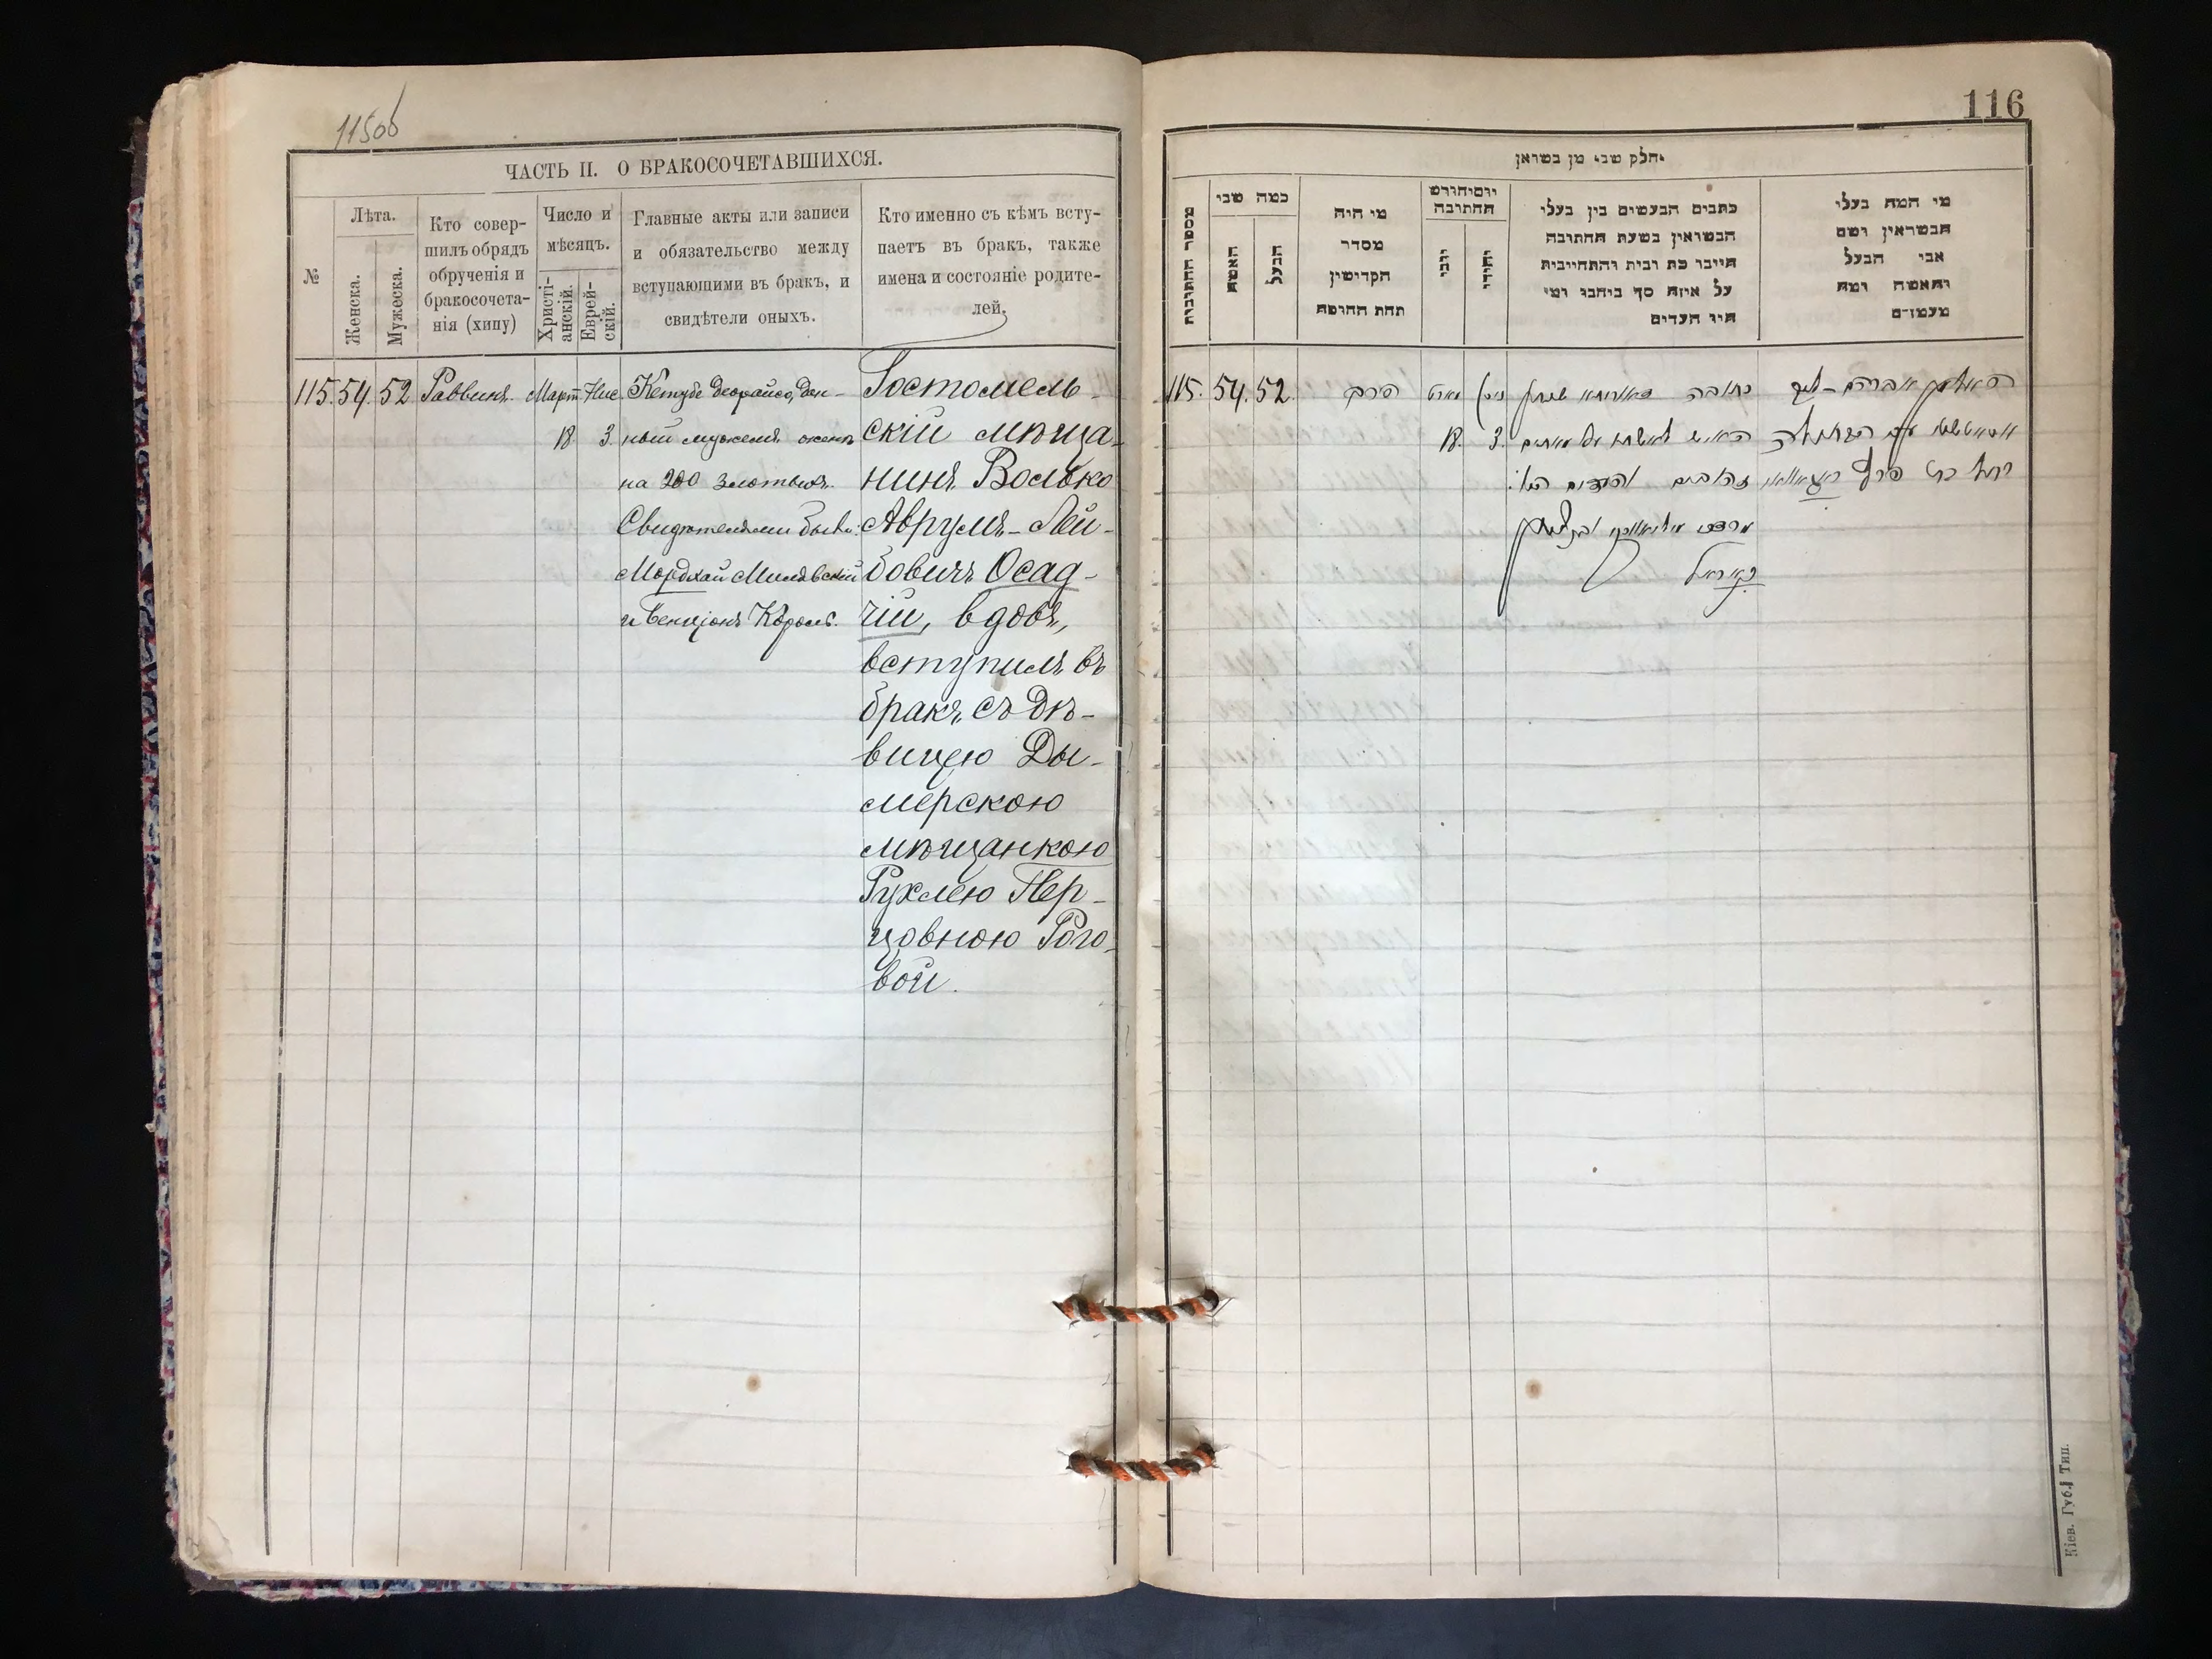 115об
ЧАСТЬ II. О БРАКОСОЧЕТАВШИХСЯ.
№
Лѣта.
Женска.
Мужеска.
Кто совер-
шилъ обрядъ
обрученія и
бракосочета-
нія (хипу)
Число и
мѣсяцъ.
Христі-
анскій.
Еврей-
скій.
Главные акты или записи
и обязательство между
вступающими въ бракъ, и
свидѣтели оныхъ.
Кто именно съ кѣмъ всту-
паетъ въ бракъ, также
имена и состояніе родите-
лей.
115. 54. 52 Раввинъ. Март Нис.
18. 3.
Кетубе деорайсо, дан-
ный мужемъ женѣ
на 200 злотыхъ.
Свидѣтелями были:
Мордхай Милявскій
и Бенціонъ Король.
Гостомель-
скій мѣща-
нинъ Волько
Аврумъ-Лей-
бовичъ Осад-
чій, вдовъ,
вступилъ въ
бракъ съ дѣ-
вицею Ды-
мерскою
мѣщанкою
Рухлею Гер-
цовною Рого-
вой.
116
חלק שני מן נשואין
מספר החתונות
כמה שני
האשה
הבעל
מי היה
מסדר
הקדישין
תחת החופה
יום וחודש
החתונה
יוני
יהודי
כתבים הנעשים בין בעלי
הנשואין בשעת החתונה
היינו כת ובית והתחייבות
על איזה סך ביחבו ומי
היו העדים
מי המה בעלי
הנשואין ושם
אבי הבעל
והאשה ומה
מעמדם
115. 54. 52. הרב מארט ניסן
18. 3.
כתובה דאורייתא שנתן
האיש לאשתו על מאתים
זהובים והעדים הם:
Кіев. Губ. Тип.